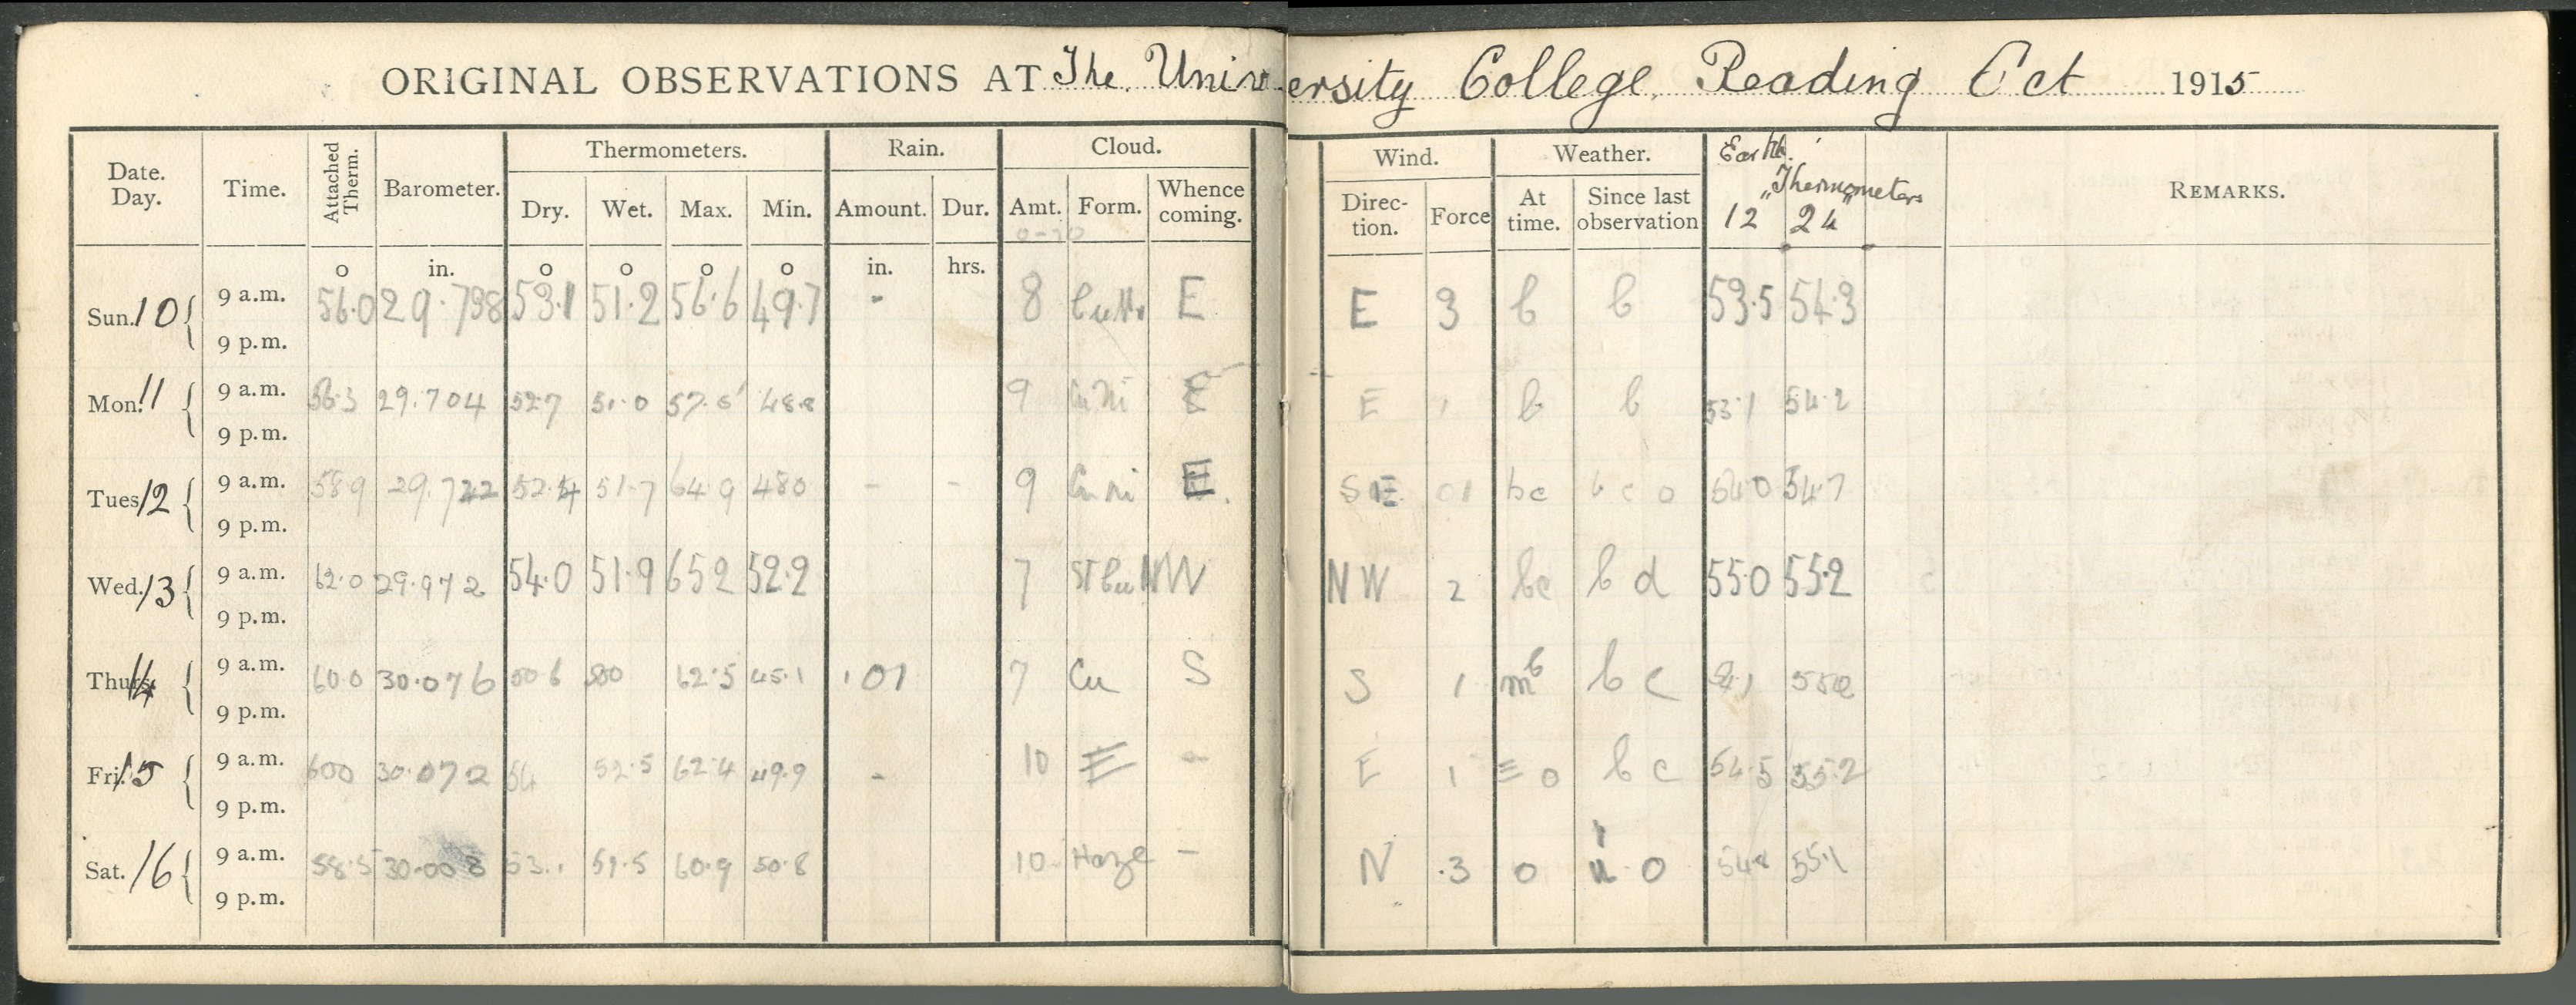 ORIGINAL OBSERVATIONS AT The University College, Reading Oct 1915
Date. Day. Time. Attached Therm. Barometer. Thermometers. Rain. Cloud. Wind. Weather. Earth Thermometers REMARKS.
Dry. Wet. Max. Min. Amount. Dur. Amt. Form. Whence coming. Direc-tion. Force At time. Since last observation 12" 24"
0-10
o in. o o o o in. hrs.
Sun. 10 9 a.m. 56.0 29.798 53.1 51.2 56.6 49.7 - 8 E E 3 b b 53.5 54.3
9 p.m.
Mon. 11 9 a.m. 56.3 29.704 52.7 51.0 57.6 48.8 9 Cu Ni E E 1 b b 53.1 54.2
9 p.m.
Tues 12 9 a.m. 58.9 29.722 52.4 51.7 64.9 48.0 - - 9 Cu Ni E. SE 01 bc b c o 54.0 54.7
9 p.m.
Wed. 13 9 a.m. 62.0 29.972 54.0 51.9 65.2 52.2 7 St Cu NW NW 2 bc b d 55.0 55.2
9 p.m.
Thurs. 14 9 a.m. 60.0 30.076 50.6 50.0 62.5 45.1 .01 7 Cu S S 1 m b b c 55.2
9 p.m.
Fri. 15 9 a.m. 60.0 30.072 54 52.5 62.4 49.9 - 10 ≡ - E 1 ≡ o b c 54.5 55.2
9 p.m.
Sat. 16 9 a.m. 58.5 30.008 53.1 51.5 60.9 50.8 10 Haze - N 3 o o 54.8 55.1
9 p.m.